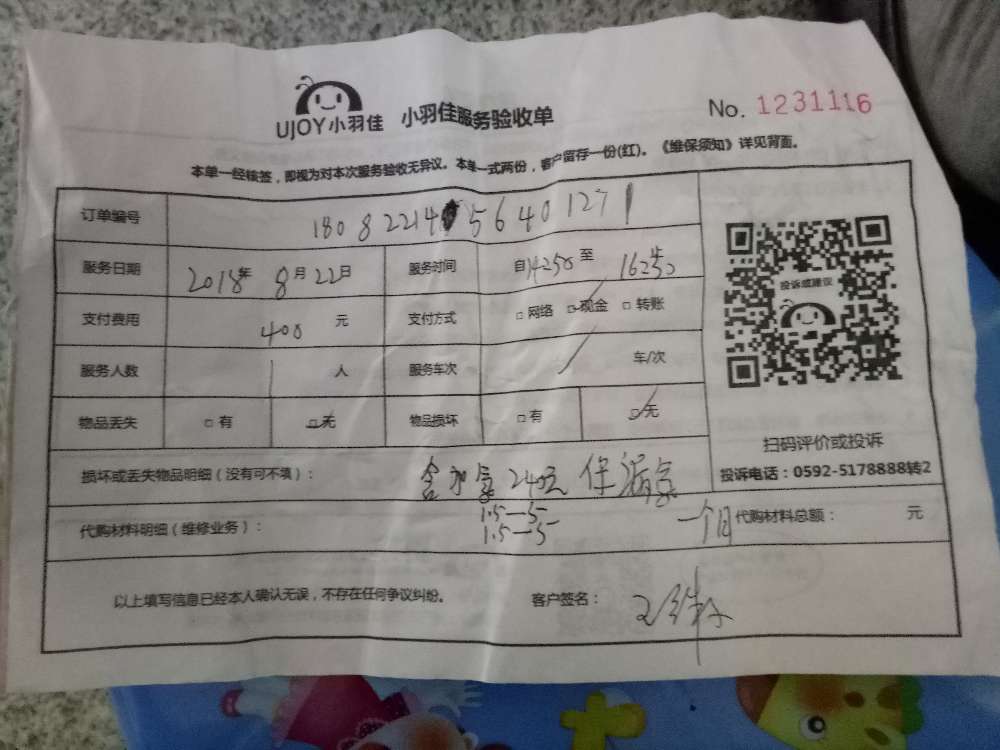 UJOY小羽佳 小羽佳服务验收单 No. 1231116
本单一经核签，即视为对本次服务验收无异议。本单一式两份，客户留存一份(红)。《维保须知》详见背面。
订单编号 1808221456401271
服务日期 2018年 8月22日 服务时间 自14250至 16250
支付费用 400 元 支付方式 □网络 □现金 □转账
服务人数 1 人 服务车次 / 车/次
物品丢失 □有 □无 物品损坏 □有 □无
投诉或建议
扫码评价或投诉
投诉电话：0592-5178888转2
损坏或丢失物品明细（没有可不填）： 含加氟240元 保漏氟
1.5—5
代购材料明细（维修业务）： 1.5—5 一个月 代购材料总额： 元
以上填写信息已经本人确认无误，不存在任何争议纠纷。 客户签名：